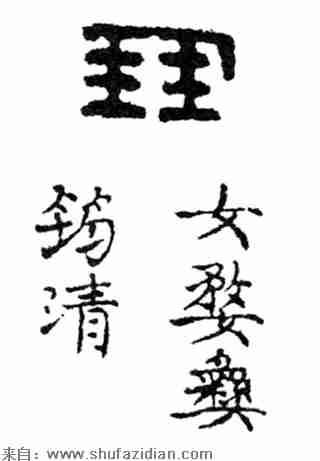 女婺彝
筠清
来自：www.shufazidian.com